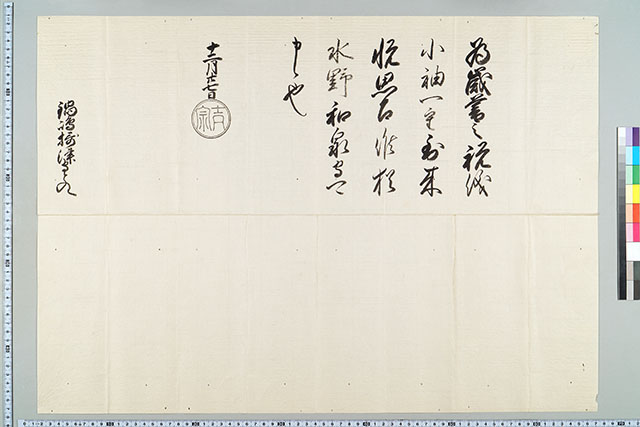 為歳暮之祝儀
小袖一重到来
悦思召候猶
水野和泉守可
申候也
十二月廿七日
吉宗
鍋島摂津守とのへ